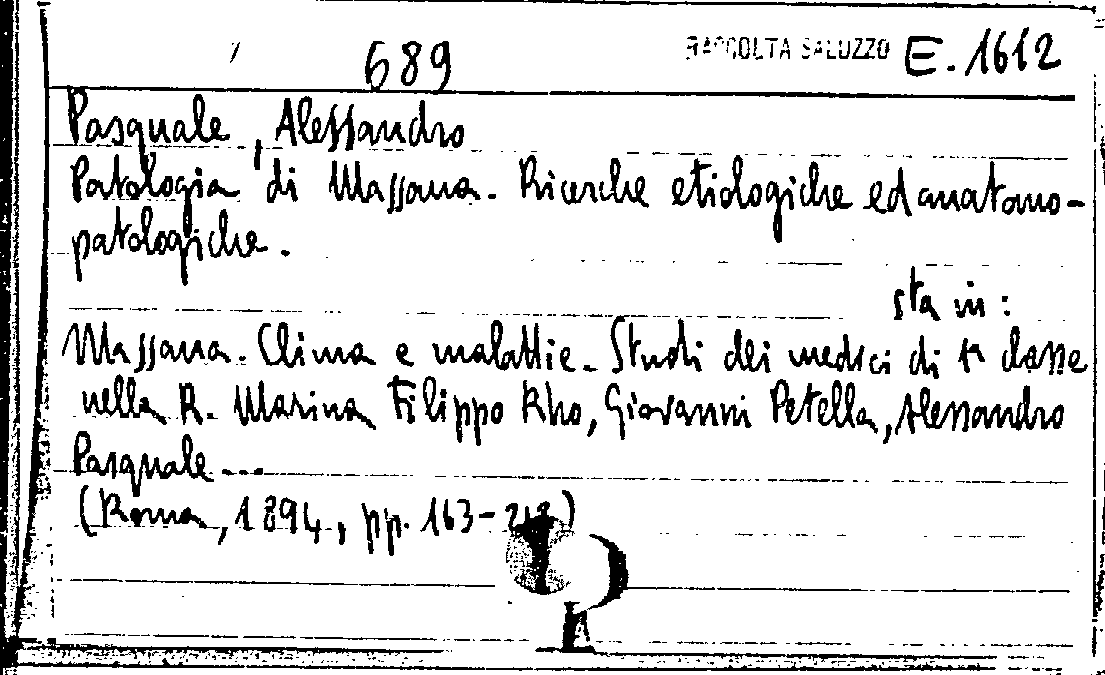 689 RACCOLTA SALUZZO E. 1612
Pasquale, Alessandro
Patologia di Massaua. Ricerche etiologiche ed anatomo-
patologiche.
sta in:
Massaua. Clima e malattie. Studi dei medici di 1a classe
nella R. Marina Filippo Rho, Giovanni Petella, Alessandro
Pasquale ...
(Roma, 1894, pp. 163-